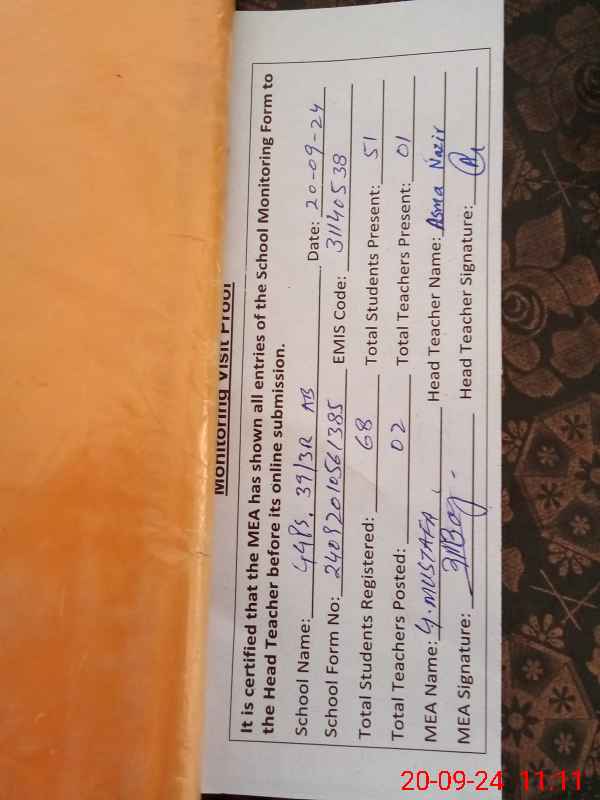 Monitoring Visit Proof
It is certified that the MEA has shown all entries of the School Monitoring Form to
the Head Teacher before its online submission.
School Name: GGPS. 39/3R AB Date: 20-09-24
School Form No: 24092010561385 EMIS Code: 31140538
Total Students Registered: 68 Total Students Present: 51
Total Teachers Posted: 02 Total Teachers Present: 01
MEA Name: G. MUSTAFA Head Teacher Name: Asma Nazir
MEA Signature: Head Teacher Signature:
20-09-24 11.11